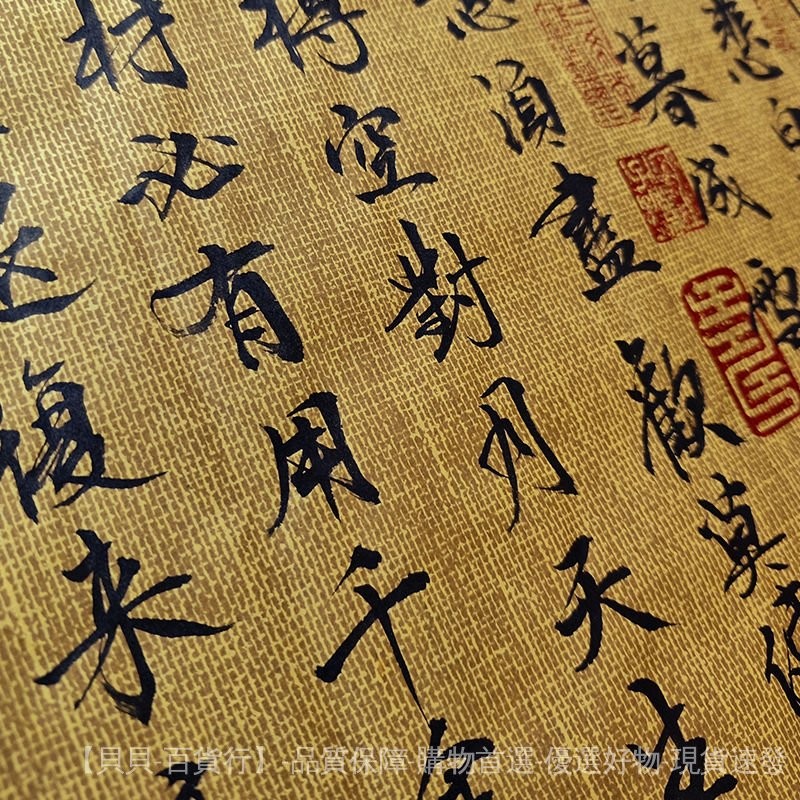 悲白
暮成雪
須盡歡莫使
樽空對月天生
材必有用千金
復來
【貝貝 百貨行】 品質保障 購物首選 優選好物 現貨速發